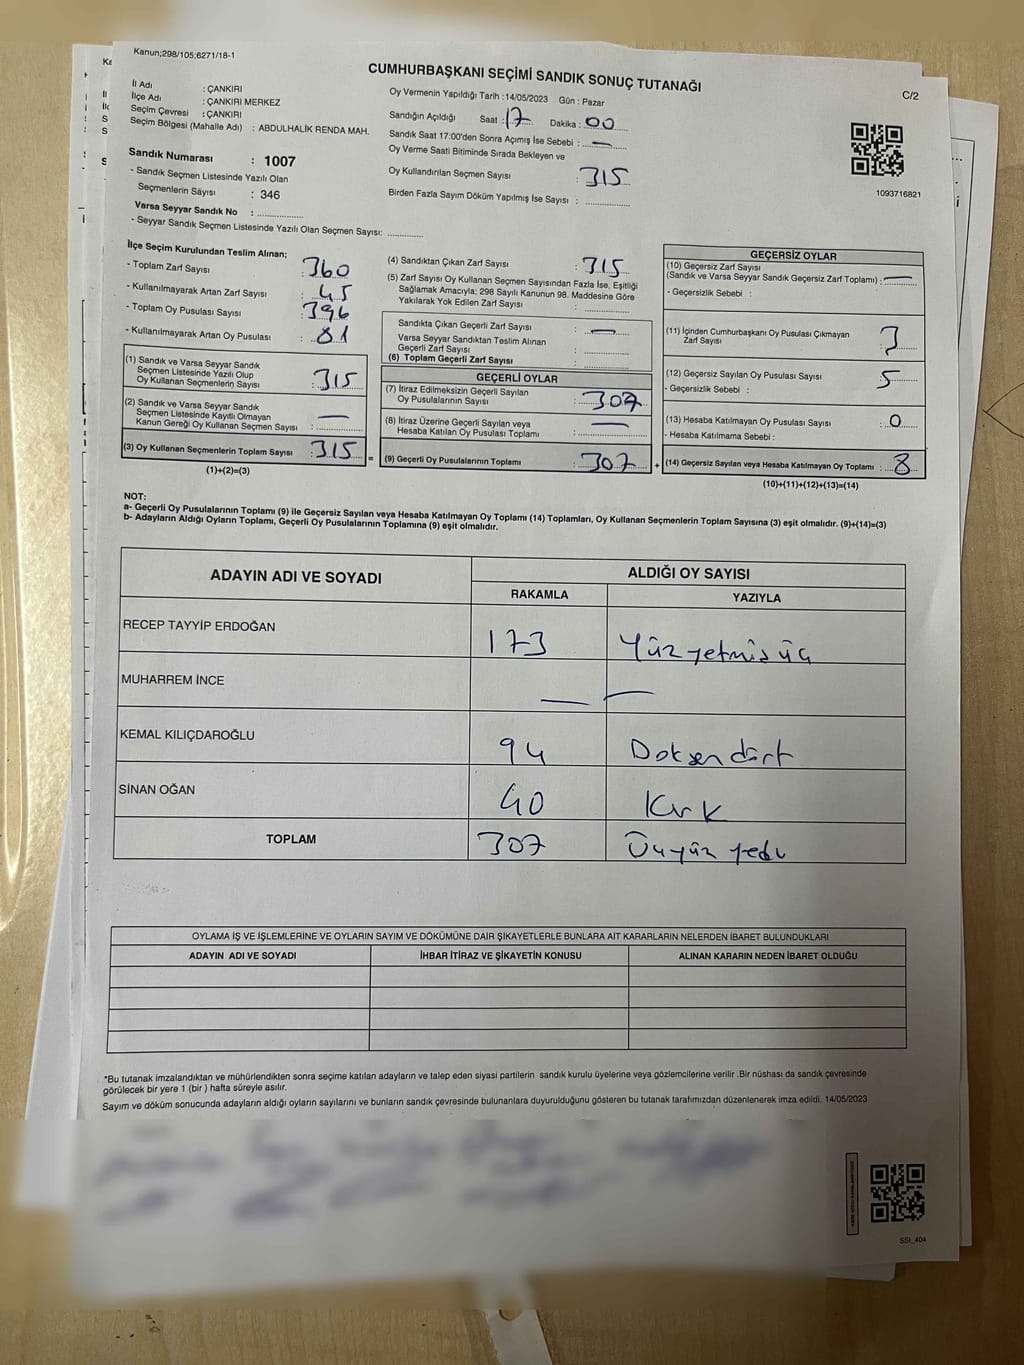 Kanun;298/105;6271/18-1
CUMHURBAŞKANI SEÇİMİ SANDIK SONUÇ TUTANAĞI
C/2
İl Adı : ÇANKIRI
İlçe Adı : ÇANKIRI MERKEZ
Seçim Çevresi : ÇANKIRI
Seçim Bölgesi (Mahalle Adı) : ABDULHALİK RENDA MAH.
Sandık Numarası : 1007
- Sandık Seçmen Listesinde Yazılı Olan
Seçmenlerin Sayısı : 346
Varsa Seyyar Sandık No : ...............
- Seyyar Sandık Seçmen Listesinde Yazılı Olan Seçmen Sayısı: ............
Oy Vermenin Yapıldığı Tarih : 14/05/2023 Gün : Pazar
Sandığın Açıldığı Saat : 17 Dakika : 00
Sandık Saat 17:00'den Sonra Açımış İse Sebebi : —
Oy Verme Saati Bitiminde Sırada Bekleyen ve
Oy Kullandırılan Seçmen Sayısı : 315
Birden Fazla Sayım Döküm Yapılmış İse Sayısı : ...............
1093716821
İlçe Seçim Kurulundan Teslim Alınan;
- Toplam Zarf Sayısı : 360
- Kullanılmayarak Artan Zarf Sayısı : 45
- Toplam Oy Pusulası Sayısı : 396
- Kullanılmayarak Artan Oy Pusulası : 81
(1) Sandık ve Varsa Seyyar Sandık
Seçmen Listesinde Yazılı Olup
Oy Kullanan Seçmenlerin Sayısı : 315
(2) Sandık ve Varsa Seyyar Sandık
Seçmen Listesinde Kayıtlı Olmayan
Kanun Gereği Oy Kullanan Seçmen Sayısı : —
(3) Oy Kullanan Seçmenlerin Toplam Sayısı : 315
(1)+(2)=(3)
(4) Sandıktan Çıkan Zarf Sayısı : 315
(5) Zarf Sayısı Oy Kullanan Seçmen Sayısından Fazla İse, Eşitliği
Sağlamak Amacıyla; 298 Sayılı Kanunun 98. Maddesine Göre
Yakılarak Yok Edilen Zarf Sayısı : ...............
Sandıkta Çıkan Geçerli Zarf Sayısı : —
Varsa Seyyar Sandıktan Teslim Alınan
Geçerli Zarf Sayısı : ...............
(6) Toplam Geçerli Zarf Sayısı : ...............
GEÇERLİ OYLAR
(7) İtiraz Edilmeksizin Geçerli Sayılan
Oy Pusulalarının Sayısı : 307
(8) İtiraz Üzerine Geçerli Sayılan veya
Hesaba Katılan Oy Pusulası Toplamı : —
= (9) Geçerli Oy Pusulalarının Toplamı : 307 +
GEÇERSİZ OYLAR
(10) Geçersiz Zarf Sayısı
(Sandık ve Varsa Seyyar Sandık Geçersiz Zarf Toplamı) : —
- Geçersizlik Sebebi :
(11) İçinden Cumhurbaşkanı Oy Pusulası Çıkmayan
Zarf Sayısı : 3
(12) Geçersiz Sayılan Oy Pusulası Sayısı : 5
- Geçersizlik Sebebi :
(13) Hesaba Katılmayan Oy Pusulası Sayısı : 0
- Hesaba Katılmama Sebebi :
(14) Geçersiz Sayılan veya Hesaba Katılmayan Oy Toplamı : 8
(10)+(11)+(12)+(13)=(14)
NOT:
a- Geçerli Oy Pusulalarının Toplamı (9) ile Geçersiz Sayılan veya Hesaba Katılmayan Oy Toplamı (14) Toplamları, Oy Kullanan Seçmenlerin Toplam Sayısına (3) eşit olmalıdır. (9)+(14)=(3)
b- Adayların Aldığı Oyların Toplamı, Geçerli Oy Pusulalarının Toplamına (9) eşit olmalıdır.
ADAYIN ADI VE SOYADI ALDIĞI OY SAYISI
RAKAMLA YAZIYLA
RECEP TAYYİP ERDOĞAN 173 Yüzyetmişüç
MUHARREM İNCE — —
KEMAL KILIÇDAROĞLU 94 Doksandört
SİNAN OĞAN 40 Kırk
TOPLAM 307 Üçyüz yedi
OYLAMA İŞ VE İŞLEMLERİNE VE OYLARIN SAYIM VE DÖKÜMÜNE DAİR ŞİKAYETLERLE BUNLARA AİT KARARLARIN NELERDEN İBARET BULUNDUKLARI
ADAYIN ADI VE SOYADI İHBAR İTİRAZ VE ŞİKAYETİN KONUSU ALINAN KARARIN NEDEN İBARET OLDUĞU
*Bu tutanak imzalandıktan ve mühürlendikten sonra seçime katılan adayların ve talep eden siyasi partilerin sandık kurulu üyelerine veya gözlemcilerine verilir .Bir nüshası da sandık çevresinde
görülecek bir yere 1 (bir ) hafta süreyle asılır.
Sayım ve döküm sonucunda adayların aldığı oyların sayılarını ve bunların sandık çevresinde bulunanlara duyurulduğunu gösteren bu tutanak tarafımızdan düzenlenerek imza edildi. 14/05/2023
SSI_404